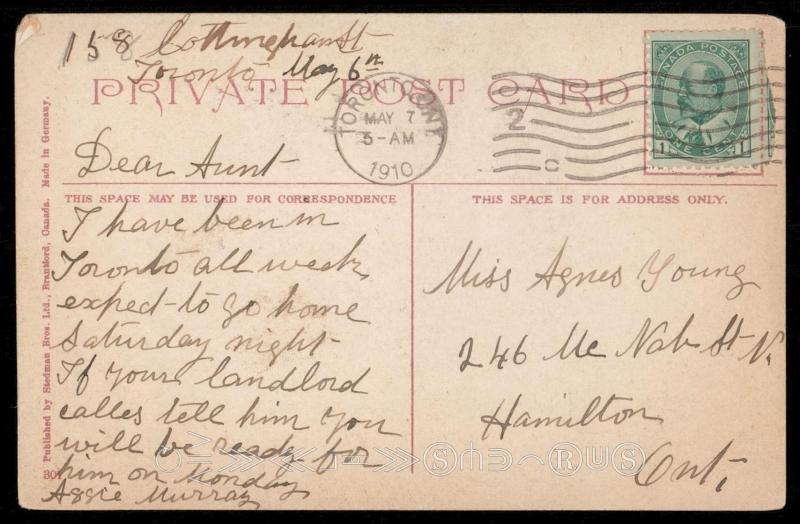 158 Cottingham St
Toronto, May 6th
PRIVATE POST CARD
TORONTO, ONT
MAY 7
5-AM
1910
2
C
CANADA POSTAGE
ONE CENT
1 1
Dear Aunt
THIS SPACE MAY BE USED FOR CORRESPONDENCE
I have been in
Toronto all week,
exped-to go home
Saturday night
If your landlord
calles tell him you
will be ready for
him on Monday
Assie Murray
THIS SPACE IS FOR ADDRESS ONLY.
Miss Agnes Young
246 Mc Nab St N.
Hamilton
Ont,
Published by Stedman Bros. Ltd., Brantford, Canada. Made in Germany.